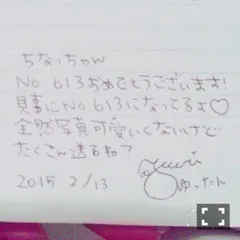 ちなっちゃん
No 613おめでとうございます!
見事にNo613になってるよ♡
全然写真可愛いくないけど
たくさん送るね?
ゆったん
2015 2/13